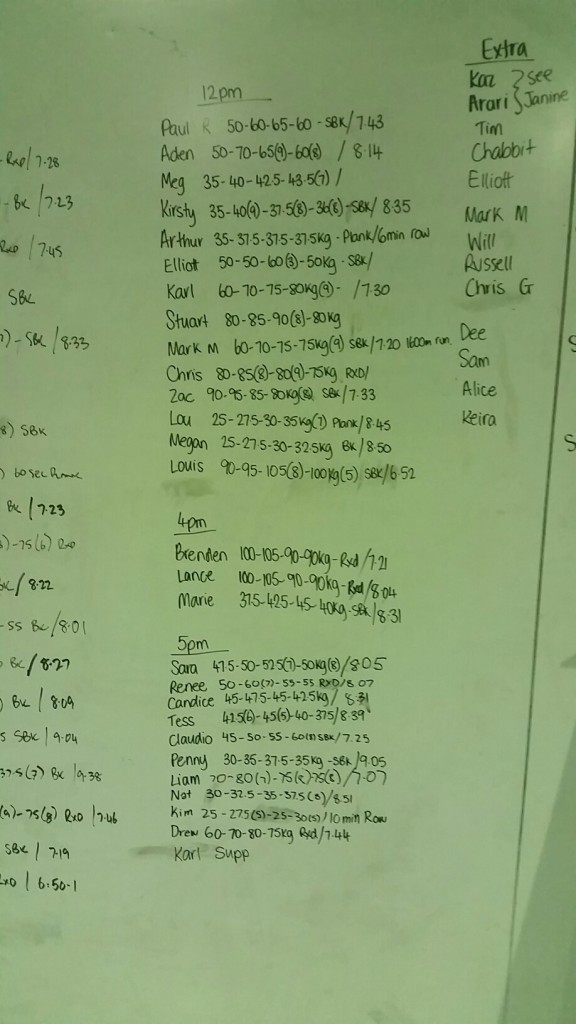 Rxp/7.28
- BK/7.23
/7.45
SBK
)-SBK/8.33
8) SBK
) 60sec
BK/7.23
)-75(6) Rxp
BK/8.22
-55 BK/8.01
BK/8.27
) BK/8.09
SBK/9.04
37.5(7) BK/9.38
(9)-75(8) RXD/7.46
SBK/7.19
RXD/6.50.1
12pm
Paul R 50-60-65-60-SBK/7.43
Aden 50-70-65(9)-60(8) /8.14
Meg 35-40-42.5-43.5(7)/
Kirsty 35-40(9)-37.5(8)-36(8)-SBK/8.35
Arthur 35-37.5-37.5-37.5kg-Plank/6min row
Elliott 50-50-60(3)-50kg-SBK/
Karl 60-70-75-80kg(9)- /7.30
Stuart 80-85-90(8)-80kg
Mark M 60-70-75-75kg(9) SBK/7.20 1600m run
Chris 80-85(8)-80(9)-75kg RXD/
Zac 90-95-85-80kg(8) SBK/7.33
Lou 25-27.5-30-35kg(7) Plank/8.45
Megan 25-27.5-30-32.5kg BK/8.50
Louis 90-95-105(8)-100kg(5) SBK/6.52
4pm
Brenden 100-105-90-90kg-Rxd/7.21
Lance 100-105-90-90kg-Rxd/8.04
Marie 37.5-42.5-45-40kg-SBK/8.31
5pm
Sara 47.5-50-52.5(7)-50kg(8)/8.05
Renee 50-60(7)-55-55 RXD/8.07
Candice 45-47.5-45-42.5kg/8.31
Tess 42.5(6)-45(5)-40-37.5/8.39
Claudio 45-50-55-60(7)SBK/7.25
Penny 30-35-37.5-35kg-SBK/9.05
Liam 70-80(7)-75(8)75(8)/7.07
Nat 30-32.5-35-37.5(8)/8.51
Kim 25-27.5(5)-25-30(5)/10min Row
Drew 60-70-80-75kg Rxd/7.44
Karl Supp
Extra
Kaz } see
Arari } Janine
Tim
Chabbit
Elliott
Mark M
Will
Russell
Chris G
Dee
Sam
Alice
Keira
S
S